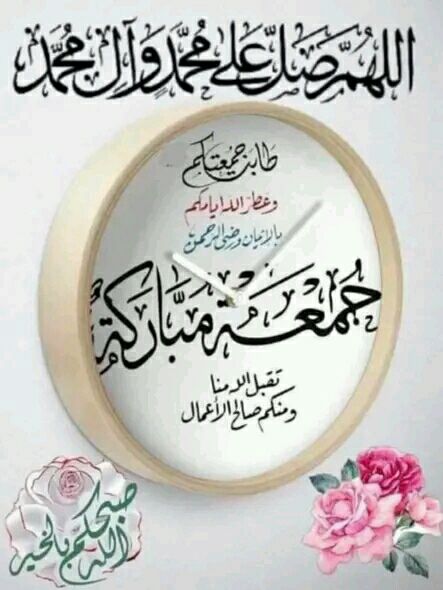 اللهم صل على محمد وآل محمد
طابت جمعتكم
وعطر الله ايامكم
بالإيمان ورضى الرحمن
جمعة مباركة
تقبل الله منا
ومنكم صالح الأعمال
صبحكم الله بالخير